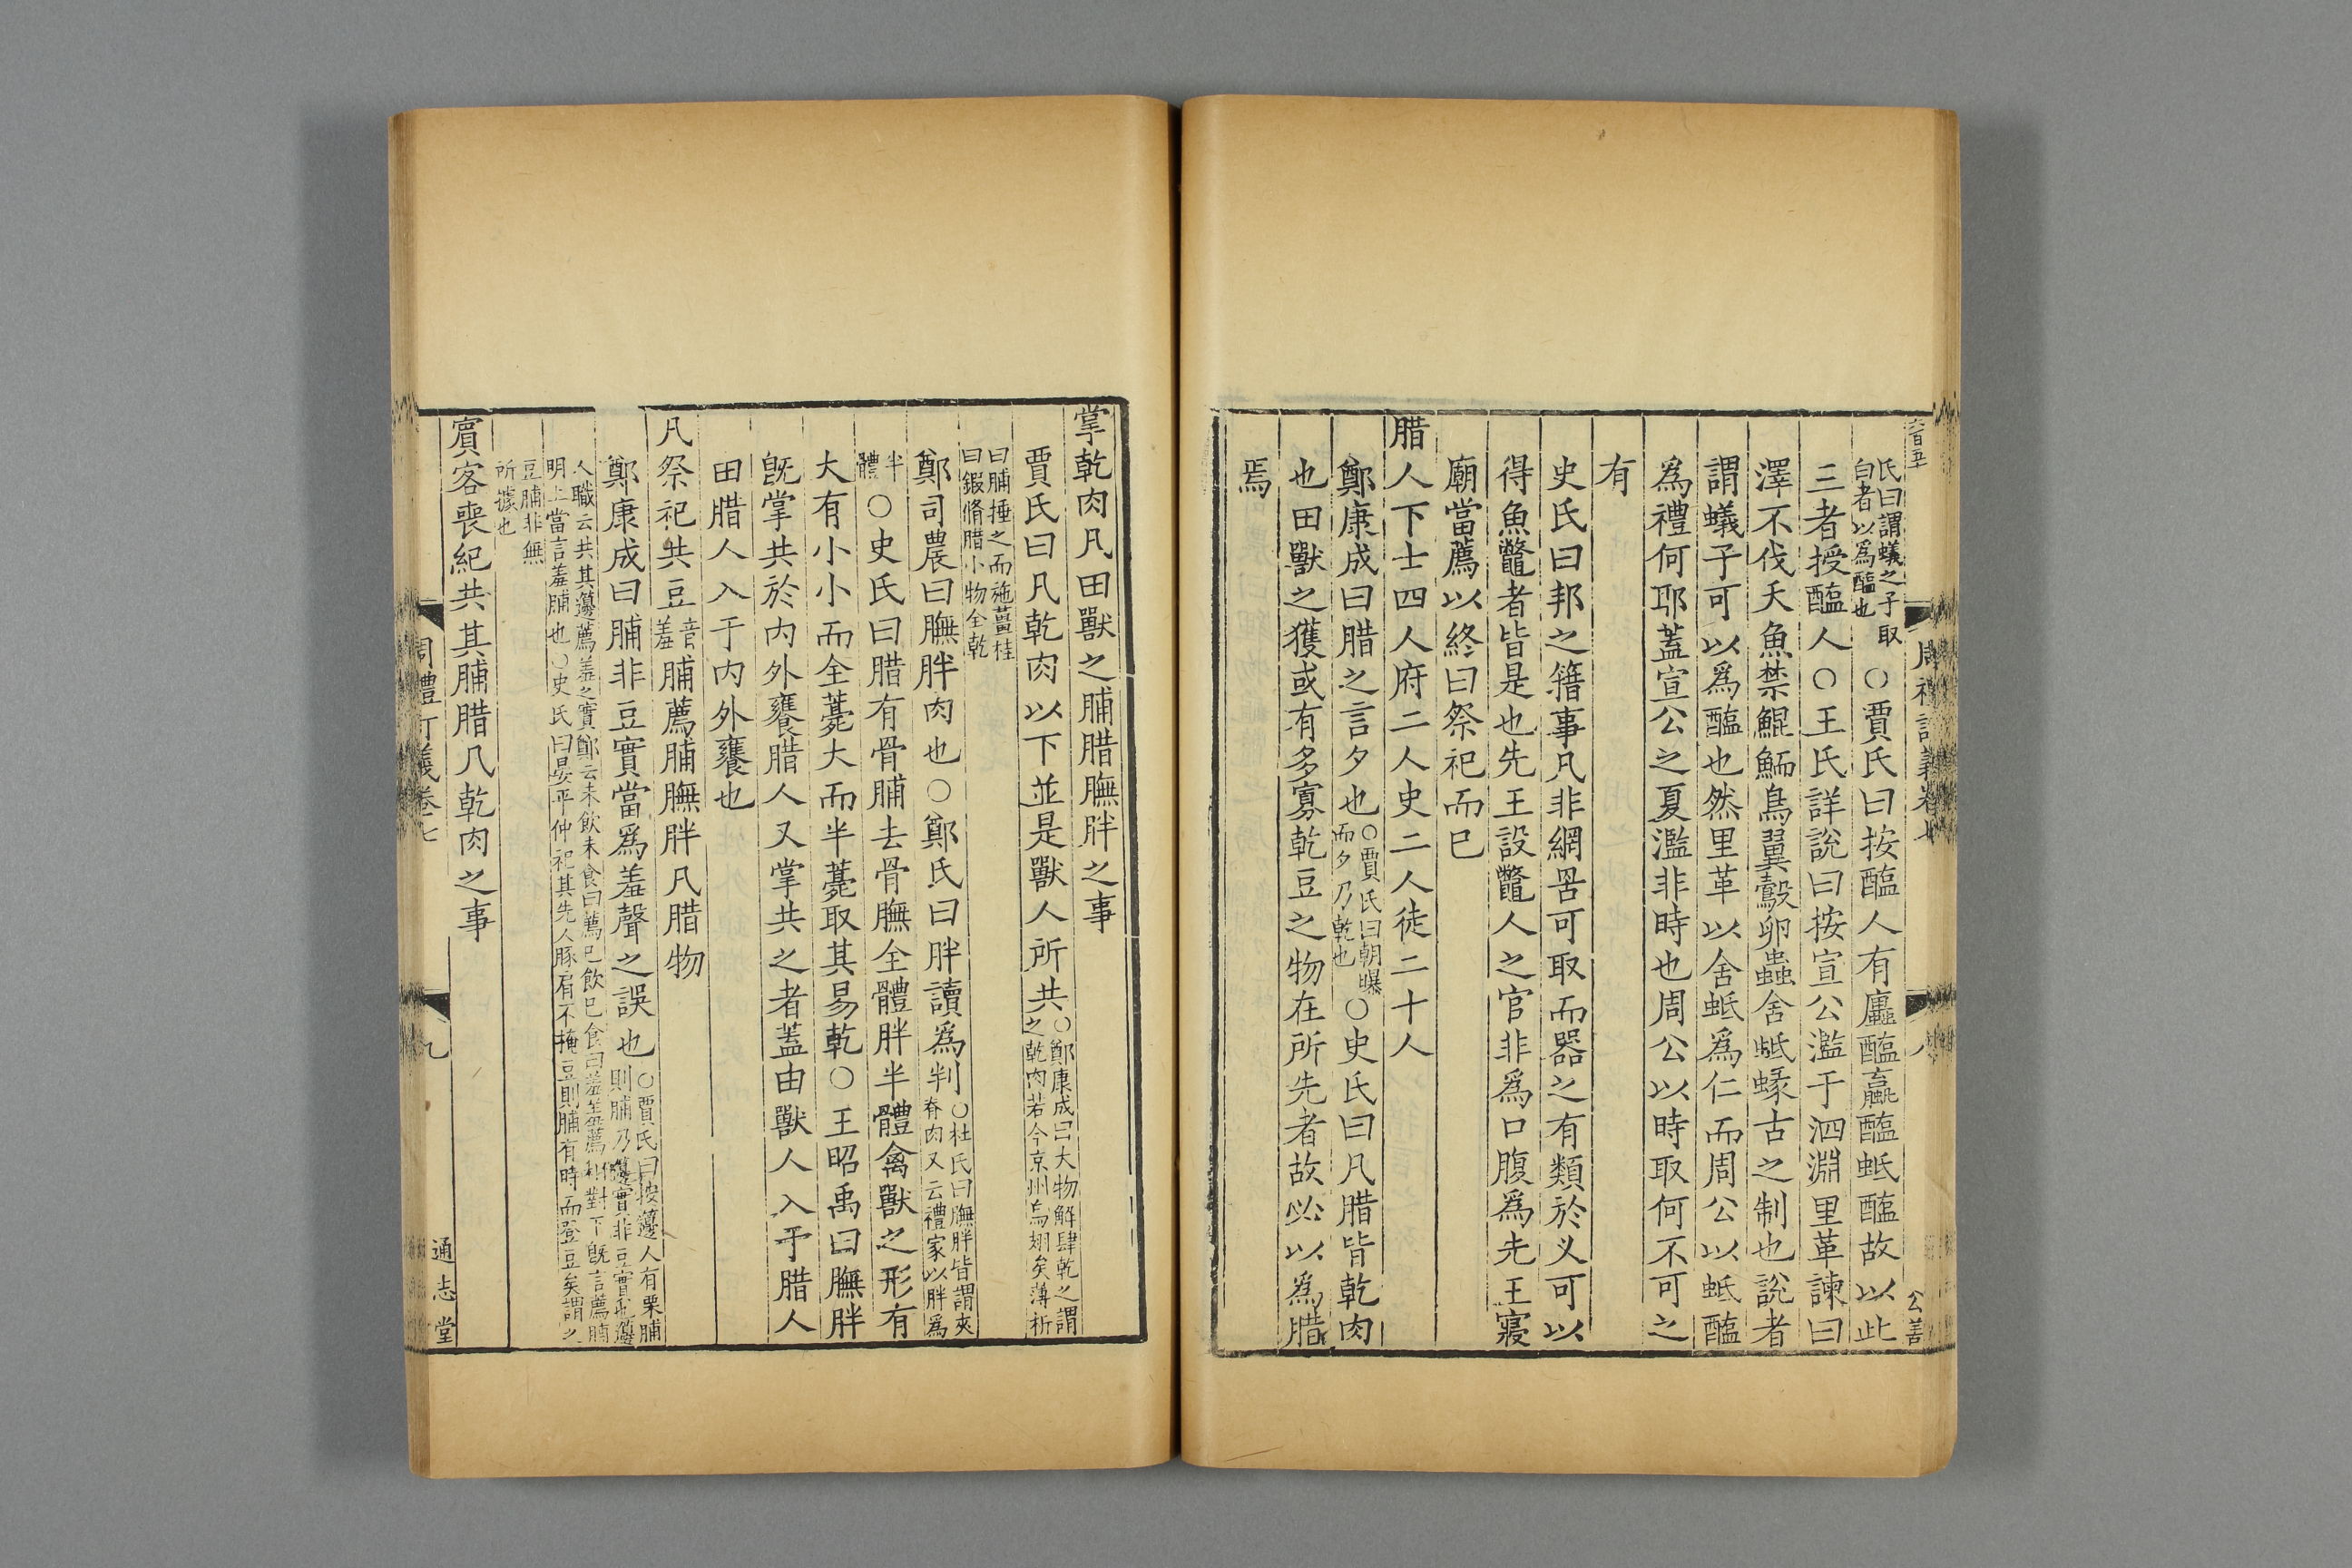 氏曰謂蟻之子取白者以為醢也○賈氏曰按醢人有蠯醢蠃醢蚳醢故以此
三者授醢人○王氏詳說曰按宣公濫于泗淵里革諫曰
澤不伐夭魚禁鯤鮞鳥翼鷇卵蟲舍蚳蝝古之制也說者
謂蟻子可以為醢也然里革以舍蚳為仁而周公以蚳醢
為禮何耶蓋宣公之夏濫非時也周公以時取何不可之
有
史氏曰邦之籍事凡非網罟可取而器之有類於义可以
得魚鼈者皆是也先王設鼈人之官非為口腹為先王寢
廟當薦以終曰祭祀而已
腊人下士四人府二人史二人徒二十人
鄭康成曰腊之言夕也○賈氏曰朝曝而夕乃乾也○史氏曰凡腊皆乾肉
也田獸之獲或有多寡乾豆之物在所先者故必以為腊
焉
周禮訂義卷七
八
公善
掌乾肉凡田獸之脯腊膴胖之事
賈氏曰凡乾肉以下並是獸人所共○鄭康成曰大物解肆乾之謂之乾肉若今京州烏翅矣薄析
曰脯捶之而施薑桂曰鍜脩腊小物全乾
鄭司農曰膴胖肉也○鄭氏曰胖讀為判○杜氏曰膴胖皆謂夾脊肉又云禮家以胖為
半體○史氏曰腊有骨脯去骨膴全體胖半體禽獸之形有
大有小小而全薧大而半薧取其易乾○王昭禹曰膴胖
旣掌共於內外饔腊人又掌共之者蓋由獸人入于腊人
田腊人入于內外饔也
凡祭祀共豆音羞脯薦脯膴胖凡腊物
鄭康成曰脯非豆實當為羞聲之誤也○賈氏曰按籩人有栗脯則脯乃籩實非豆實也籩
人職云共其籩薦羞之實鄭云未飲未食曰薦已飲已食曰羞羞薦相對下旣言薦脯明上當言羞脯也○史氏曰晏平仲祀其先人豚肩不掩豆則脯有時而登豆矣謂之
豆脯非無所據也
賓客喪紀共其脯腊凡乾肉之事
周禮訂義卷七
九
通志堂